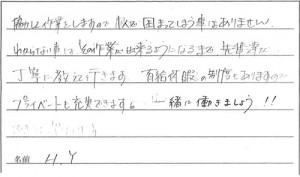 協力し作業をしますので 困まってしまう事はありません。
わからない事も その作業が出来るようになるまで 先輩達が
丁寧に教えて行きます。有給休暇の制度もありますので
プライベートも充実できます。一緒に働きましょう!!
名前 H.Y